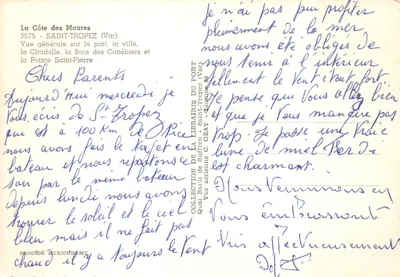 La Côte des Maures
3575 - SAINT-TROPEZ (Var)
Vue générale sur le port, la ville,
la Citadelle, la Baie des Canébiers et
la Pointe Saint-Pierre
Chers Parents
Aujourd'hui mercredi je
vous écris de St Tropez
que est à 100 Km de Nice
nous avons fais le trajet en
bateau et nous repartons ce
soir par le même bateau
depuis lundi nous avons
trouver le soleil et le ciel
bleu mais il ne fait pas
chaud il y a toujours le vent
COLLECTION DE LA LIBRAIRIE DU PORT
Quai Bailli de Suffren - Saint-Tropez (Var)
Vue aérienne
je n'ai pas pu profiter
pleinement de la mer
nous avons été obligés de
nous tenir à l'intérieur
tellement le vent était fort
Je pense que vous allez bien
et que je vous manque pas
trop. Je passe une vraie
lune de miel
est charmant.
Nous terminons en
vous embrassant
très affectueusement